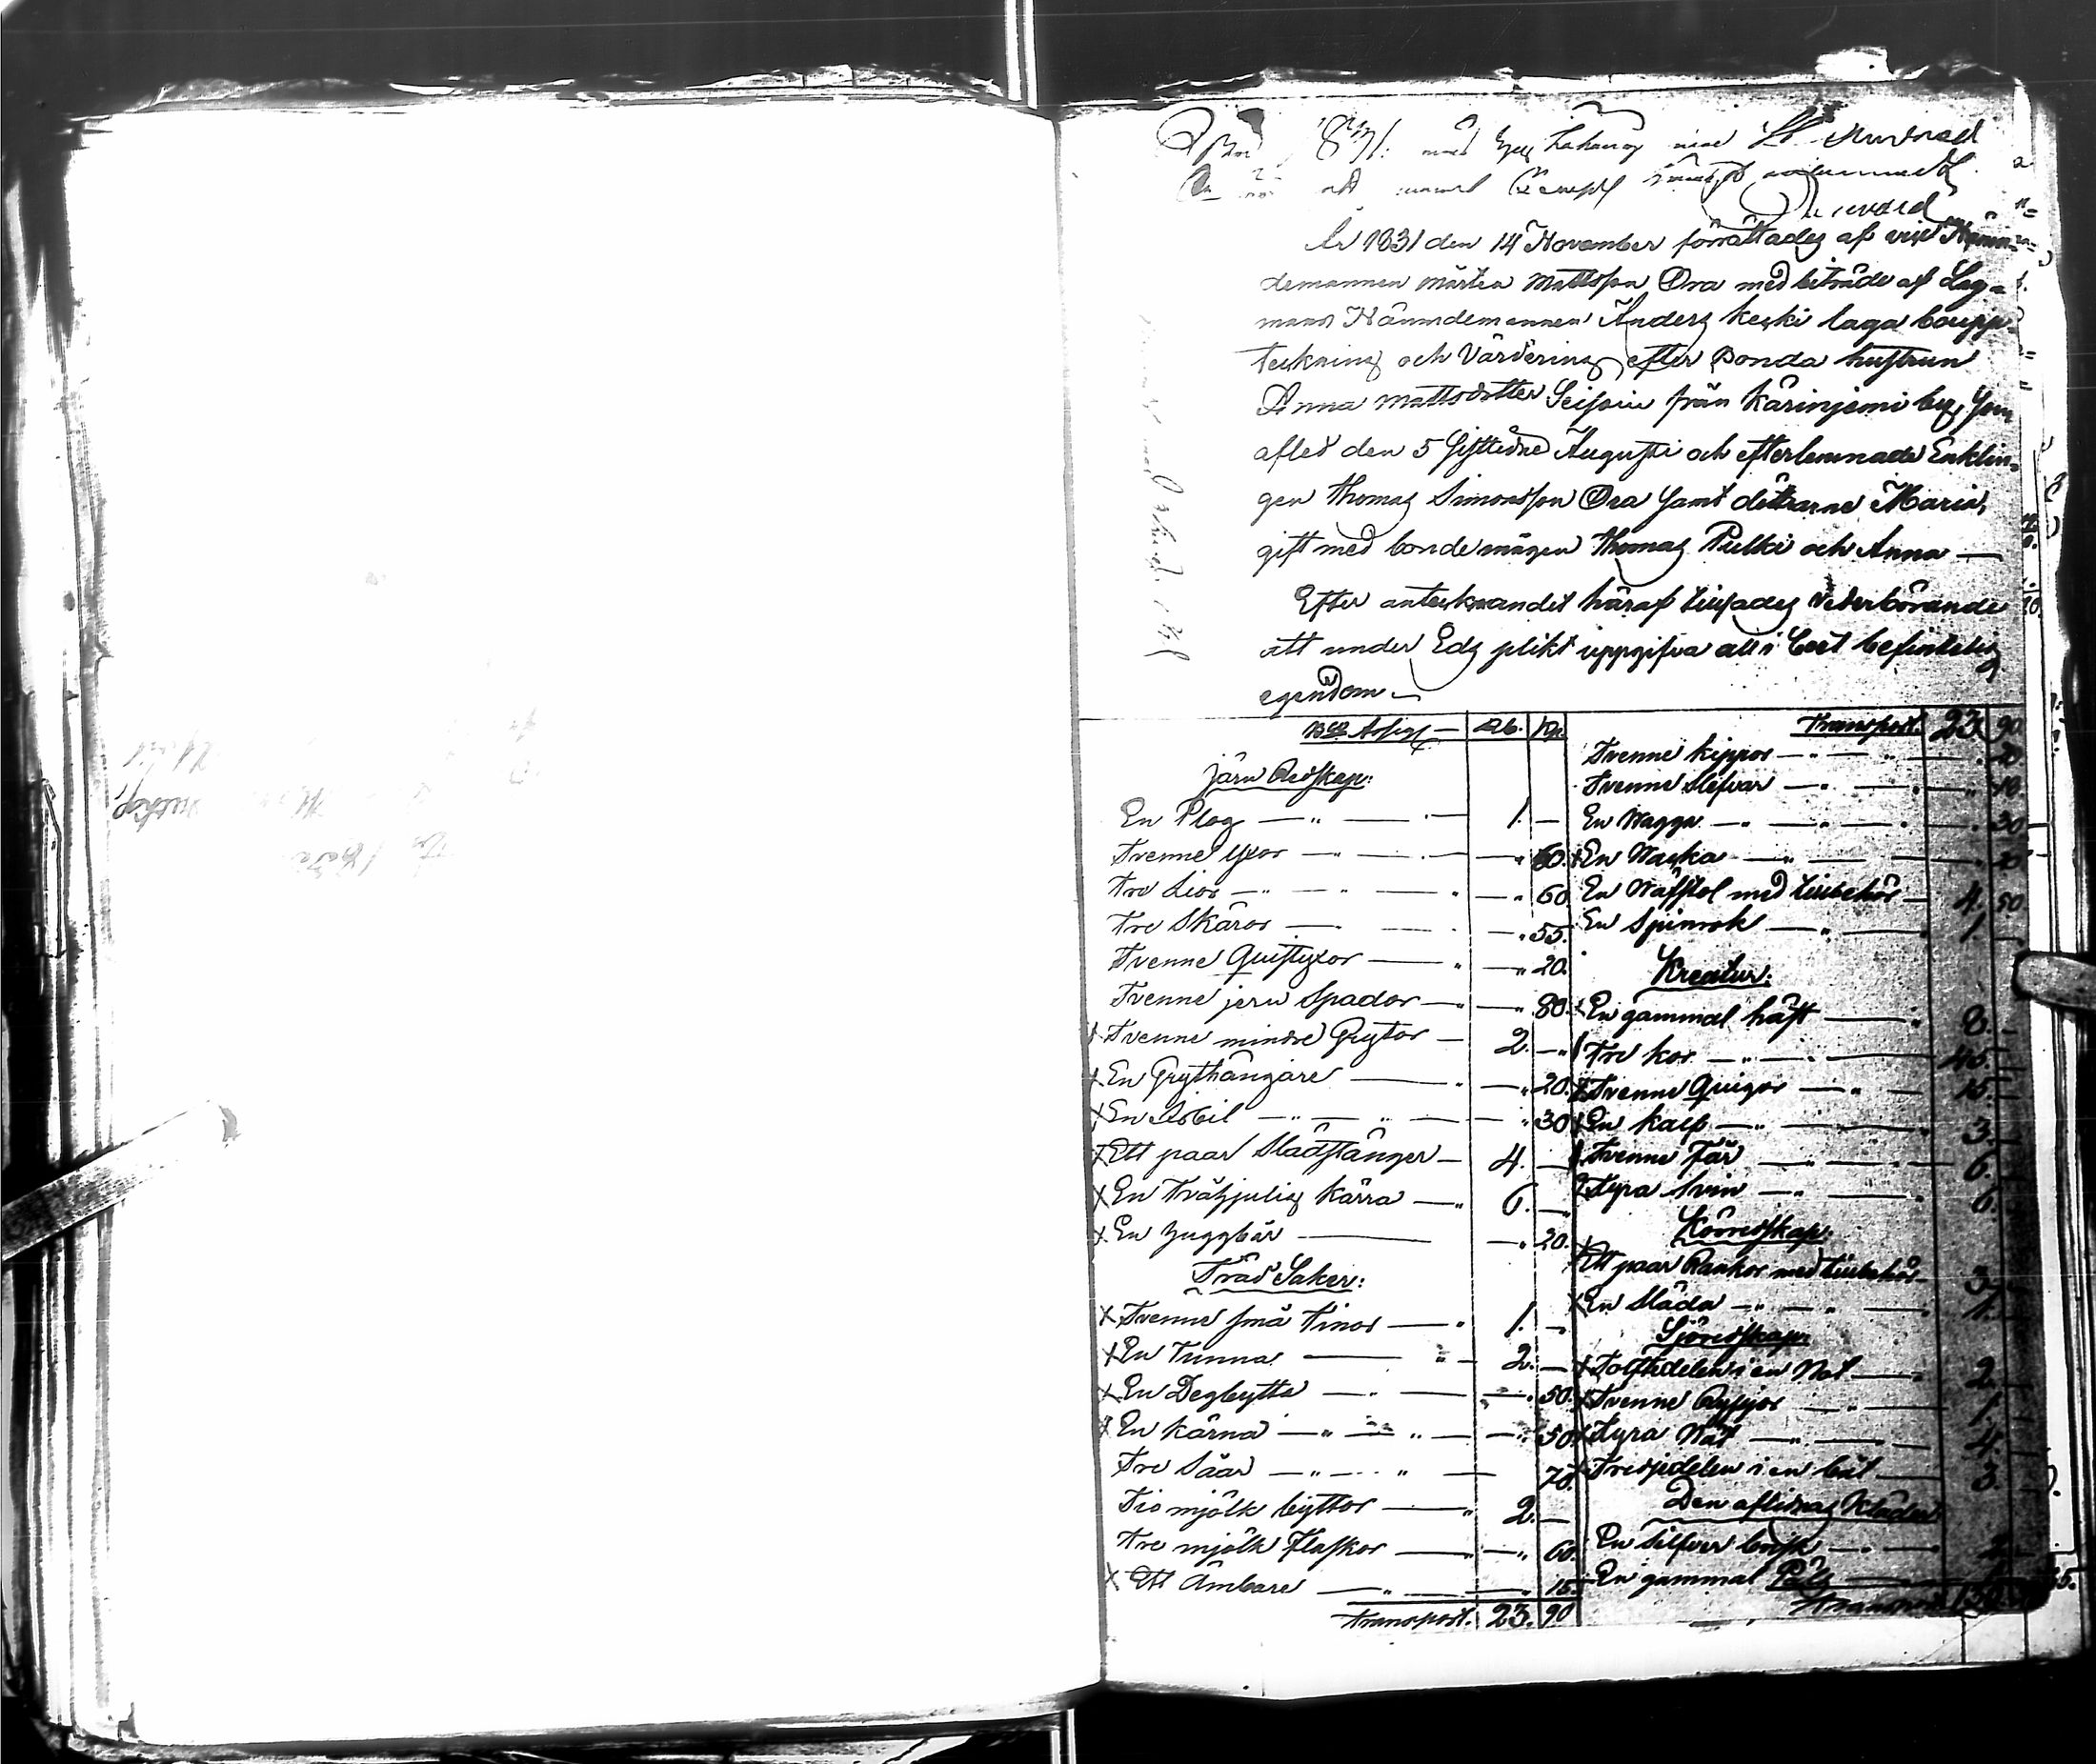 År 1831 den 14 November förrättades af vice Nämn-
demannen Mårten Mattsson Ora med biträde af Lag-
mans Nämndemannen Anders Keski laga boupp-
teckning och Värdering efter Bonda hustrun
Anna Mattsdotter från Kärinjemi by, som
afled den 5 sistledne Augusti och efterlemnade Enklin-
gen Thomas Simonsson Ora samt döttrarne Maria,
gift med bondemågen Thomas Pulki och Anna —
Efter antecknandet häraf tillsades vederbörande
att under Eds plikt uppgifva allt i boet befintelig
egendom —
Bco Assign — Rb. Kp.
Järn Redskap:
En Plog — 1. —
Tvenne yxor — 60.
Tre Lior — 60.
Tre Skäror — 55.
Tvenne Quistyxor — 20.
Tvenne jern Spador — 80.
Tvenne mindre Grytor — 2. —
En Grythängare — 20.
En Isbil — 30
Ett paar Slädstänger — 4. —
En Tvåhjulig kärra — 6. —
En — 20.
Träd Saker:
Tvenne små Tinor — 1. —
En Tunna — 2. —
En Degbytta — 50.
En kärna — 50
Tre Såar — 70.
Tio mjölk byttor — 2. —
Tre mjölk Flaskor — 60.
Ett Ämbare — 15.
Transport. 23. 90
Transport. 23. 90
Tvenne kippor — 20
Tvenne Slefvar — 10.
En Vagga — 30
En Vacka — 20
En Väfstol med tillbehör — 4. 50
En Spinrok — 1. —
Kreatur:
En gammal häst — 8. —
Tre kor — 45. —
Tvenne Quigor — 15. —
En kalf — 3. —
Tvenne Får — 6. —
Fyra Svin — 6. —
Körredskap:
Ett paar Rankor med tillbehör — 3. —
En Släda — 1. —
Sjöredskap:
Tolftedelen i en Not — 2. —
Tvenne Ryssjor — 1.
Fyra Nät — 4.
Tredjedelen i en båt — 3.
Den aflidnas Kläder
En Silfver brisk — 2.
En gammal Päls
Transport